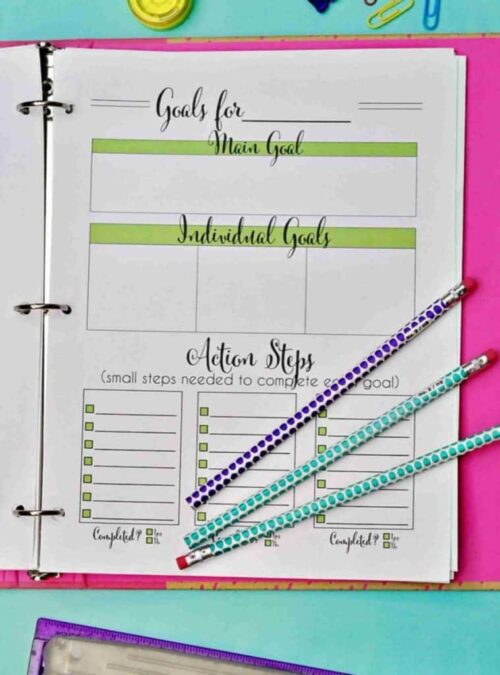 Goals for
Main Goal
Individual Goals
Action Steps
(small steps needed to complete goal)
Completed? Yes No
Completed? Yes No